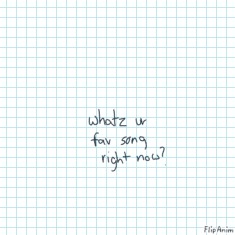 whatz ur
fav song
right now?
FlipAnim